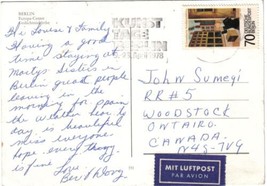 BERLIN
Europa-Center
Hi Loreen & Family
Having a good
time staying at
Marlys Sisters in
Berlin great people
leaving in the
morning for Spain
the weather here to
day is beautiful
miss everyone
hope every thing
is fine Love
Bev & Dory
KUNST
BERLIN
70
John Sumegi
RR #5
WOODSTOCK
ONTARIO
CANADA.
N4S-7V9
MIT LUFTPOST
PAR AVION